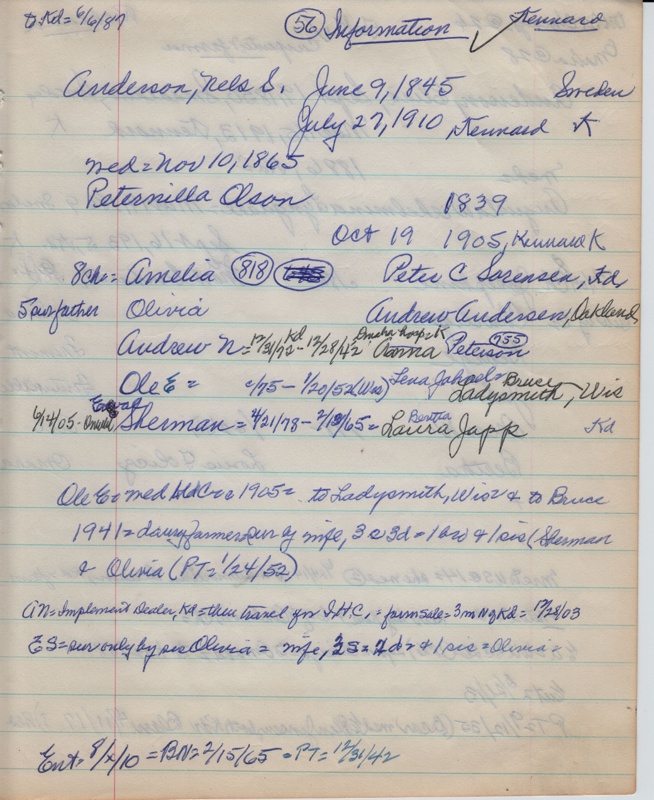 to Kd = 6/6/87 (56) Information ✓ Kennard
Anderson, Nels S. June 9, 1845 Sweden
July 27, 1910 Kennard K
med = Nov 10, 1865
Peternilla Olson 1839
Oct 19 1905, Kennard K
8 ch = Amelia (818) Peter C Sorensen, Kd,
5 sur father Olivia Andrew Andersen, Oakland,
Andrew N = 12/31/72 Kd - 12/28/42 Omaha hosp = K Anna Peterson 755
Ole E = c/75 - 1/20/52 (Wis) Lena Bruce
Ladysmith, Wis
6/14/05 - Sherman = 4/21/78 - 2/13/65 = Bertha Laura Japp Kd
Ole E = med 1905 = to Ladysmith, Wis & to Bruce
1941 = dairy farmer = sur by wife, 3 s 3 d = 1 bro & 1 sis (Sherman
& Olivia (PT = 1/24/52)
AN = Implement Dealer, Kd = then travel for I.H.C. = farm Sale = 3 m N of Kd = 12/28/03
ES = sur only by sis Olivia = wife, 2 s = 2 d = & 1 sis = Olivia =
Ent = 8/x/10 = BN = 2/15/65 = PT = 12/31/42